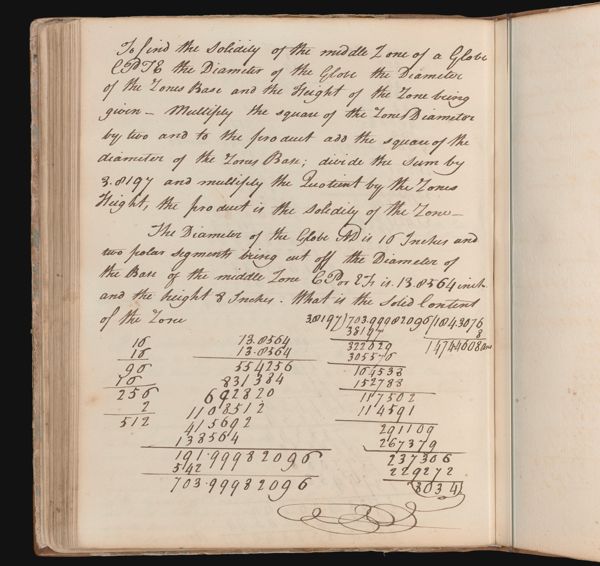 To find the Solidity of the middle Zone of a Globe
the Diameter of the Globe the Diameter
of the Zones Base and the Height of the Zone being
given – Multiply the square of the Zones Diameter
by two and to the product add the square of the
diameter of the Zones Base; divide the Sum by
3.8197 and multiply the Quotient by the Zones
Height, the product is the Solidity of the Zone –
The Diameter of the Globe AD is 16 Inches and
two polar segments being cut off the Diameter of
the Base of the middle Zone is 13.8564 inch
and the height 8 Inches. What is the Solid Content
of the Zone
38197)703.99982096(184.3076
8
1474.4608 ans
16
16
96
16
256
2
512
13.8564
13.8564
554256
831384
692820
1108512
415692
138564
191.99982096
512
703.99982096
38197
322029
305576
164538
152788
117502
114591
291109
267379
237306
229272
8034